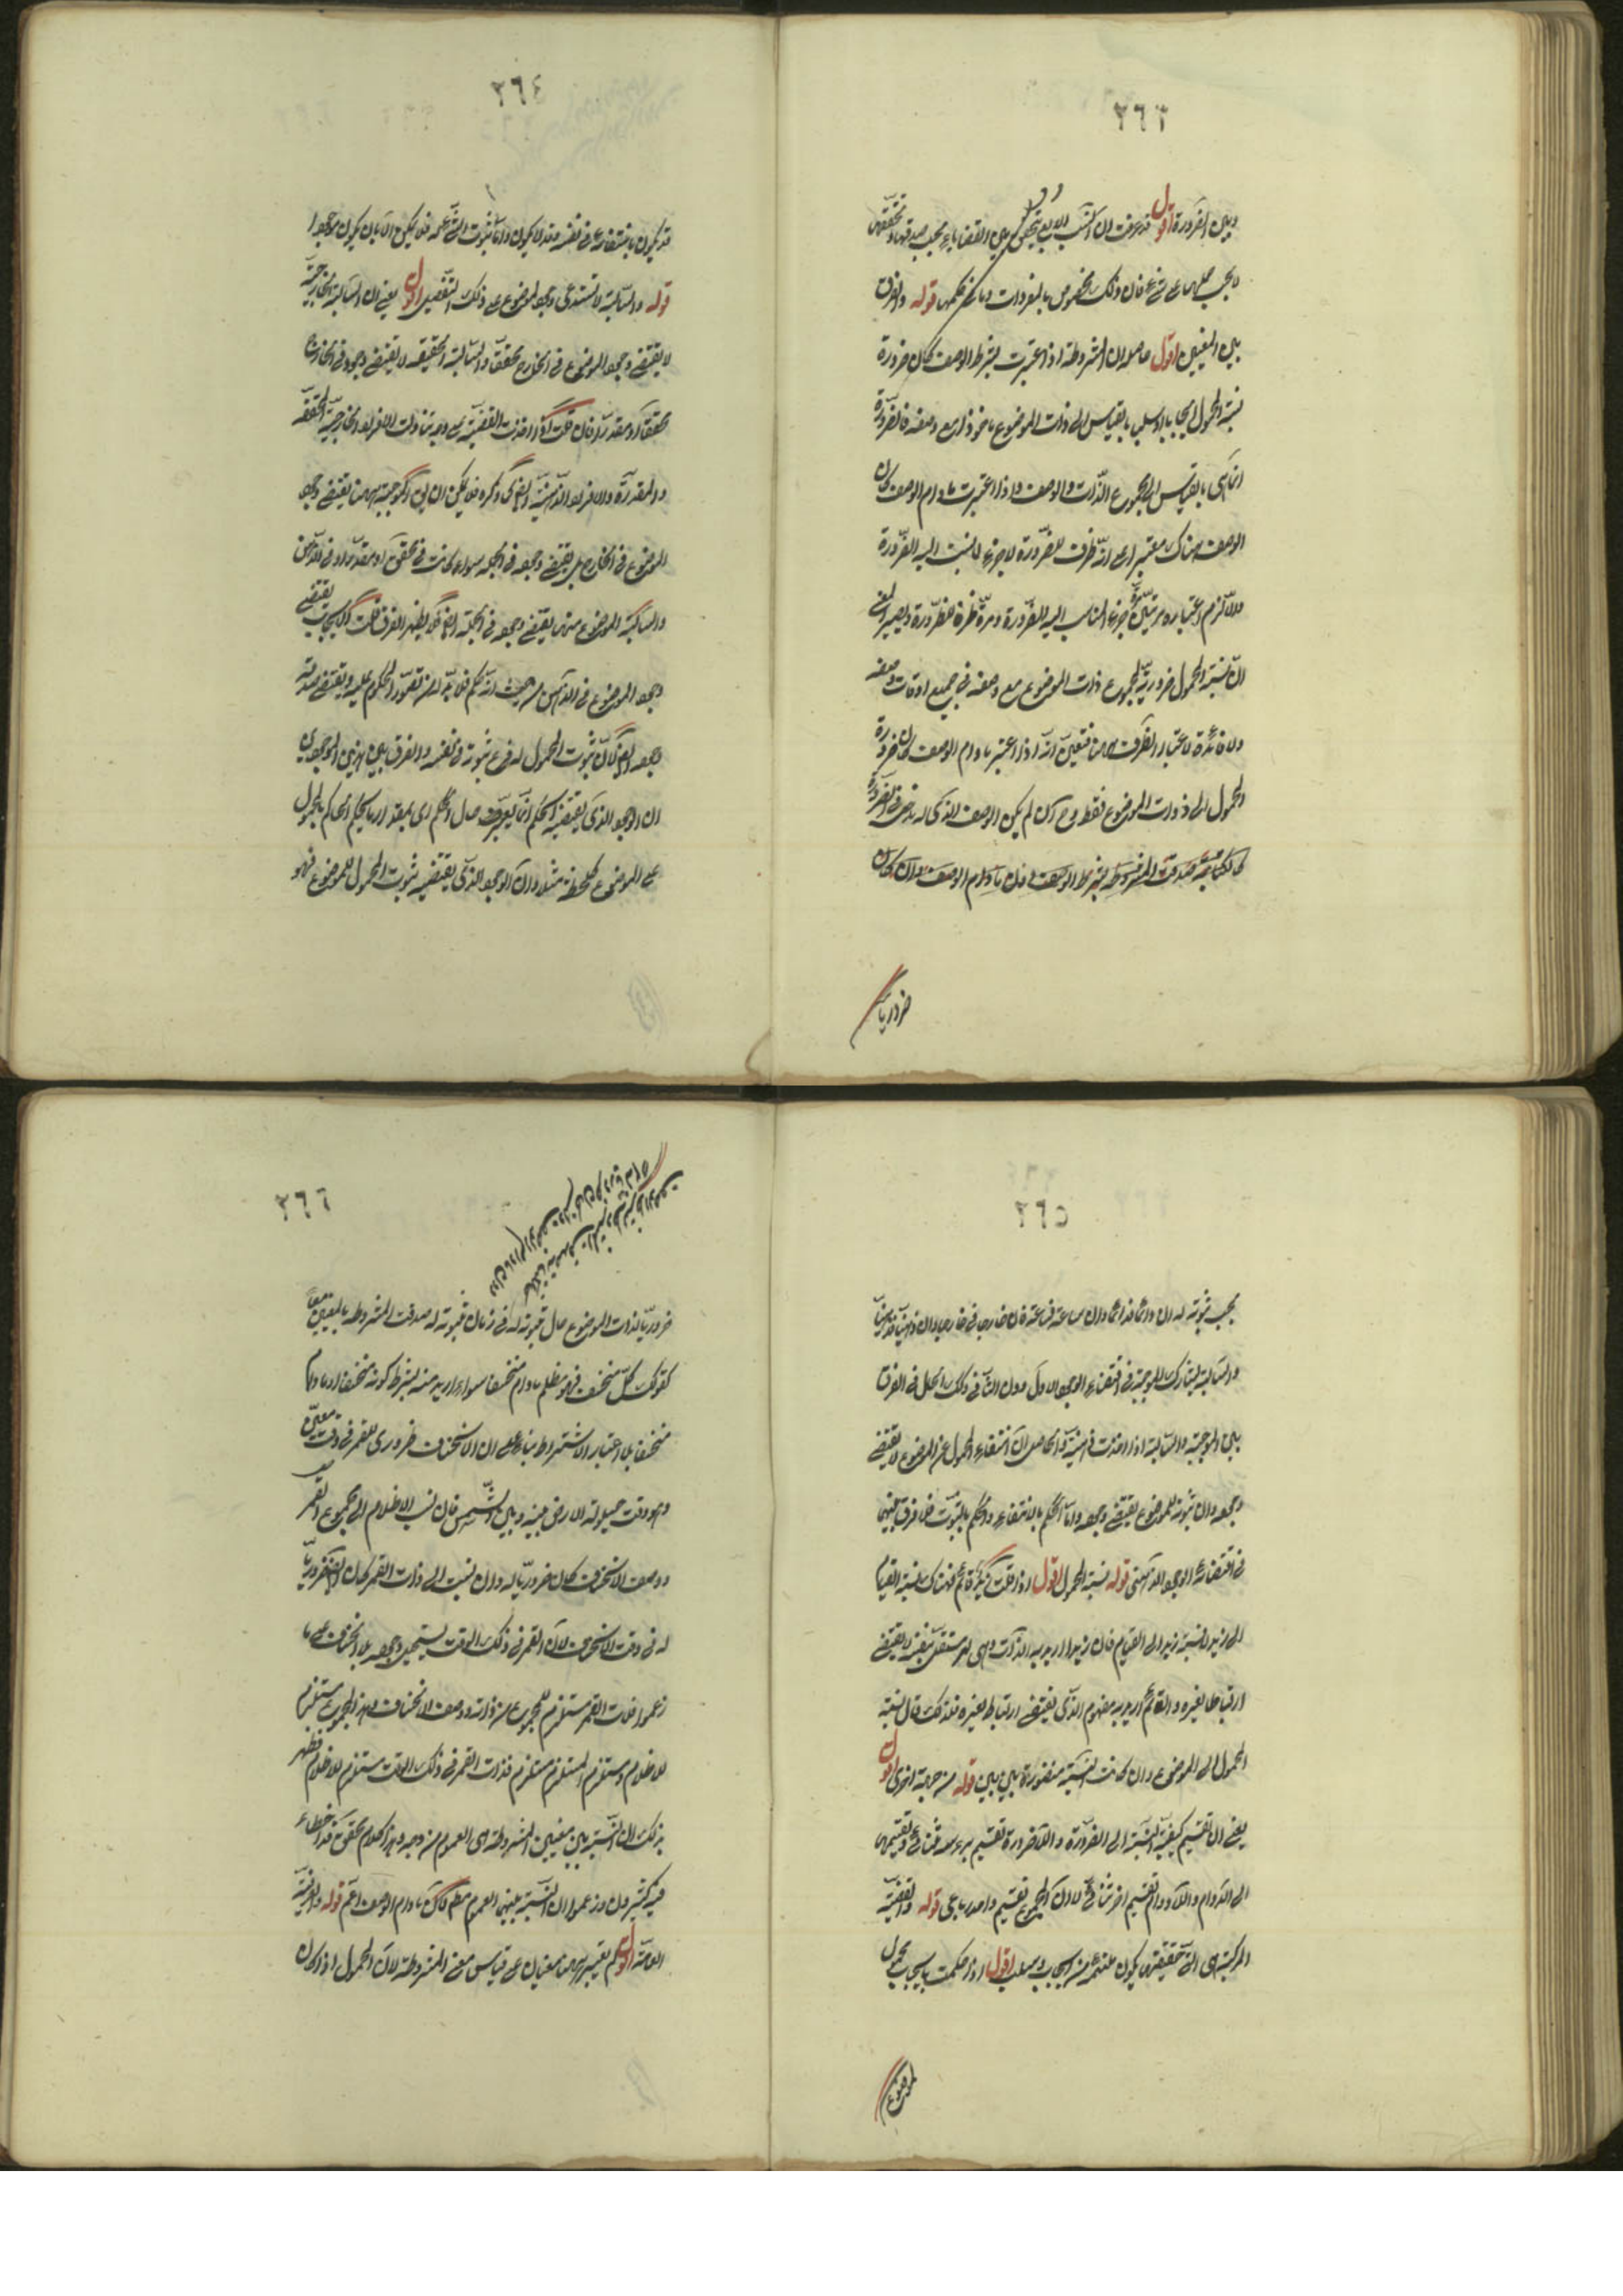 ٢٦٣
وبين الضرورة اقول قد عرفت ان النسب الاربع يتحقق بين القضايا بحسب صدقها وتحققها
لا بحسب حملها على شئ فان ذلك مخصوص بالمفردات وما فى حكمها قوله والفرق
بين المعنيين اقول حاصله ان المشروطة اذا اعتبرت بشرط الوصف كان ضرورة
نسبة المحمول ايجابا او سلبا بالقياس الى ذات الموضوع ماخوذا مع وصفه فالضرورة
انما هى بالقياس الى مجموع الذات والوصف واذا اعتبرت مادام الوصف كان
الوصف هناك معتبرا على انه ظرف للضرورة لا جزء لما نسب اليه الضرورة
والا لزم اعتباره مرتين مرة جزء لما نسب اليه الضرورة ومرة ظرفا للضرورة ويصير المعنى
ان نسبة المحمول ضرورية لمجموع ذات الموضوع مع وصفه فى جميع اوقات وصفه
ولا فائدة لاعتبار الظرف ههنا فتعين انه اذا اعتبر مادام الوصف كان ضرورة
المحمول الى ذات الموضوع فقط وح ان لم يكن الوصف الذى له دخل فى الضرورة
كالكتابة صدقت المشروطة بشرط الوصف دون مادام الوصف وان كان
ضروريا
٢٦٤
قد يكون بانتفائه فى نفسه وقد لا يكون واما ثبوت الشئ لغيره فلا يمكن الا بان يكون موجودا
قوله والسالبة لا تستدعى وجود الموضوع على ذلك التفصيل اقول يعنى ان السالبة الخارجية
لا يقتضى وجود الموضوع فى الخارج محققا والسالبة الحقيقية لا يقتضى وجوده فى الخارج
محققا او مقدرا فان قلت اذا اخذت القضية على وجه تناولت الافراد الخارجية المحققة
والمقدرة والافراد الذهنية ايضا كما ذكره فلا يمكن ان الموجبة ههنا يقتضى وجود
الموضوع فى الخارج بل يقتضى وجوده فى الجملة سواء كانت فى محقق او مقدر او فى الذهن
والسالبة والموضوع منها يقتضى وجوده فى الجملة ايضا فلا يظهر الفرق قلت الايجاب يقتضى
وجود الموضوع فى الذهن من حيث انه حكم فلا بد له من تصور المحكوم عليه ويقتضى صدقه
وجوده ايضا لان ثبوت المحمول له فرع ثبوته فى نفسه والفرق بين هذين الوجودين
ان الوجود الذى يقتضيه الحكم انما يعتبر حال الحكم اى بمقدار ما يحكم الحاكم بالمحمول
على الموضوع كلحظة مثلا وان الوجود الذى يقتضيه ثبوت المحمول للموضوع فهو
٢٦٥
بحسب ثبوته له ان دائما فدائما وان ساعة فساعة وان خارجا فخارجا وان ذهنا فذهنا
والسالبة يشارك الموجبة فى اقتضاء الوجود الاول دون الثانى وكذلك الحال فى الفرق
بين الموجبة والسالبة اذا اخذت ذهنية والحاصل ان انتفاء المحمول عن الموضوع لا يقتضى
وجوده وان ثبوته للموضوع يقتضى وجوده واما الحكم بالانتفاء والحكم بالثبوت فلا فرق بينهما
فى اقتضاء الوجود الذهنى قوله نسبة المحمول اقول اذا قلت زيد قائم فهناك نسبة القيام
الى زيد ونسبة زيد الى القيام فان زيدا اريد به الذات وهى امر مستقل بنفسه لا يقتضى
ارتباطا بغيره والقائم اريد به مفهوم الذى يقتضى ارتباطا بغيره فلذلك قال نسبة
المحمول الى الموضوع وان كانت النسبة متصورة بين بين قوله من جهة اخرى اقول
يعنى ان تقسيم كيفية النسبة الى الضرورة واللاضرورة تقسيم برأسه ثنائى وتقسيمها
الى الدوام واللادوام تقسيم اخر ثنائى لا ان المجموع تقسيم واحد رباعى قوله والقضية
المركبة هى التى حقيقتها يكون ملتئمة من ايجاب وسلب اقول اذا حكمت بايجاب محمول
لموضوع
٢٦٦
ضروريا لذات الموضوع حال ثبوته له فى زمان ثبوته له صدقت المشروطة بالمعنيين معا
كقولك كل منخسف فهو مظلم مادام منخسفا سواء اريد منه بشرط كونه منخسفا او مادام
منخسفا بلا اعتبار الاشتراط بناء على ان الانخساف ضرورى للقمر فى وقت معين
وهو وقت حيلولة الارض بينه وبين الشمس فان نسب الاظلام الى مجموع القمر
ووصف الانخساف كان ضروريا له وان نسبت الى ذات القمر كان ايضا ضروريا
له فى وقت الانخساف لان القمر فى ذلك الوقت يستحيل وجوده بلا انخساف على ما
زعموا فذات القمر مستلزم للمجموع من ذاته ووصف الانخساف وهذا المجموع مستلزم
للاظلام ومستلزم المستلزم مستلزم فذات القمر فى ذلك الوقت مستلزم للاظلام فظهر
بذلك ان النسبة بين معنيين المشروطة هى العموم من وجه وهذا كلام محقق قد اخطاء
فيه كثيرون وزعموا ان النسبة بينهما العموم مطلقا وان مادام الوصف اعم قوله والعرفية
العامة اقول لم يعتبر ههنا معنيان على قياس معنى المشروطة لان المحمول اذا كان